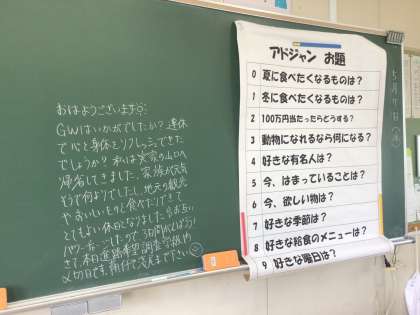 おはようございます
GWはいかがでしたか？連休
で心と身体をリフレッシュできた
でしょうか？私は実家の山口へ
帰省してきました。家族が元気
そうで何よりでしたし、地元の観光
やおいしいもの食べたりできて
とてもよい休日になりました。お互い
パワーチャージしたので3日間がんばろう!
さて、本日進路希望調査学校内
〆切日です。朝イチで浅え までで下さい
アドジャン お題
0 夏に食べたくなるものは？
1 冬に食べたくなるものは？
2 100万円当たったらどうする？
3 動物になれるなら何になる？
4 好きな有名人は？
5 今、はまっていることは？
6 今、欲しい物は？
7 好きな季節は？
8 好きな給食のメニューは？
9 好きな曜日は？
5月7日